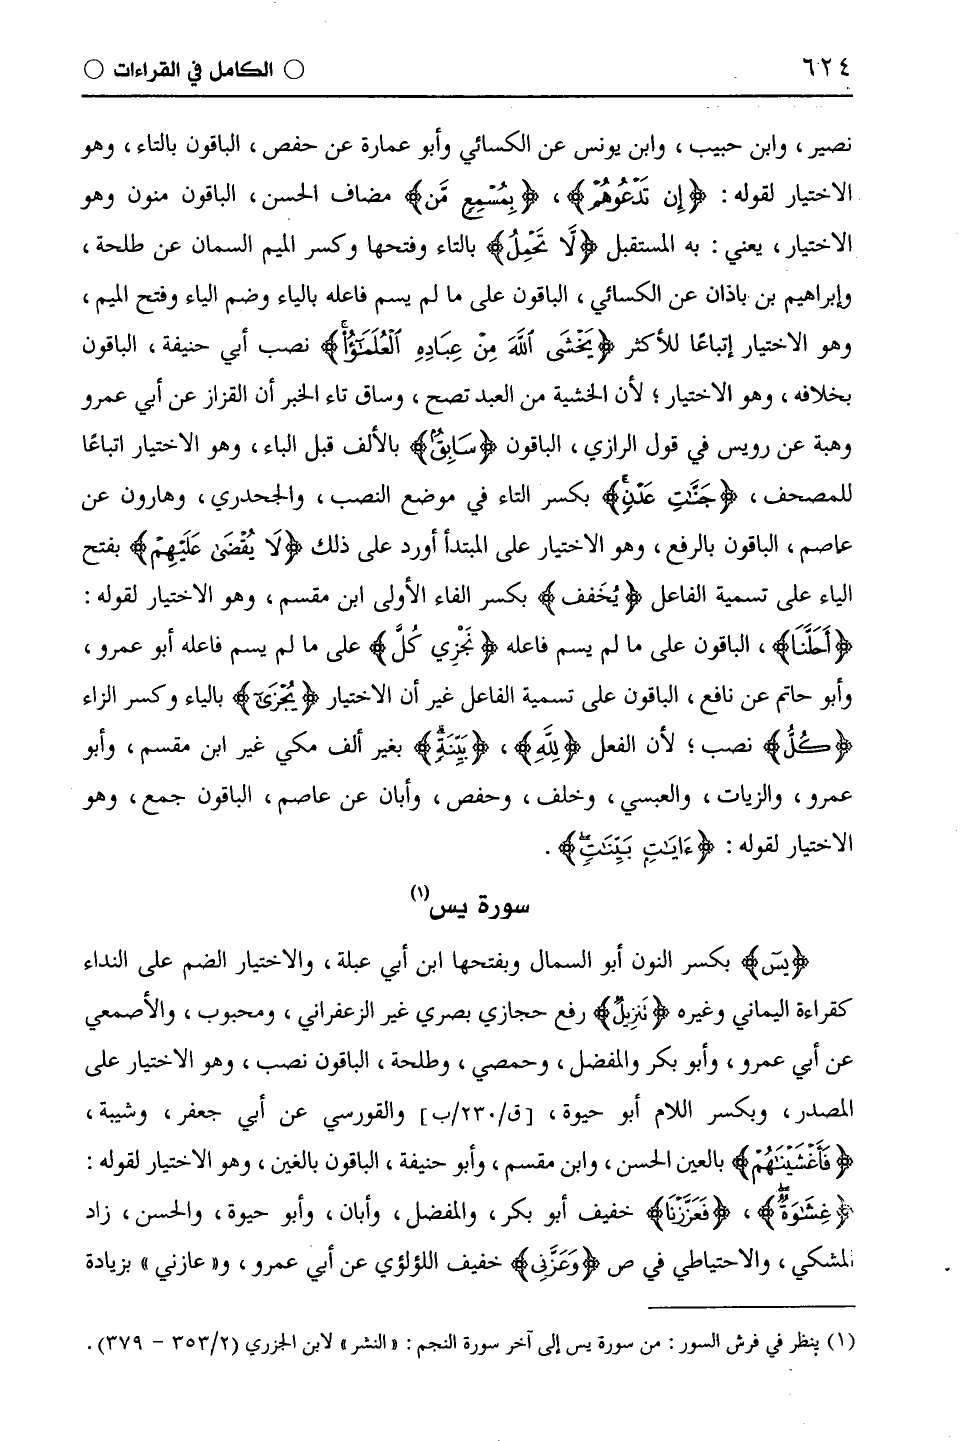 ٦٢٤ ○ الكامل في القراءات ○
نصير ، وابن حبيب ، وابن يونس عن الكسائي وأبو عمارة عن حفص ، الباقون بالتاء ، وهو
الاختيار لقوله : ﴿إِن تَدْعُوهُمْ﴾ ، ﴿بِمُسْمِعٍ مَّن﴾ مضاف الحسن ، الباقون منون وهو
الاختيار ، يعني : به المستقبل ﴿لَا تَحْمِلُ﴾ بالتاء وفتحها وكسر الميم السمان عن طلحة ،
وإبراهيم بن باذان عن الكسائي ، الباقون على ما لم يسم فاعله بالياء وضم الياء وفتح الميم ،
وهو الاختيار إتباعًا للأكثر ﴿يَخْشَى ٱللَّهَ مِنْ عِبَادِهِ ٱلْعُلَمَٰٓؤُا۟ۚ﴾ نصب أبي حنيفة ، الباقون
بخلافه ، وهو الاختيار ؛ لأن الخشية من العبد تصح ، وساق تاء الخبر أن القزاز عن أبي عمرو
وهبة عن رويس في قول الرازي ، الباقون ﴿سَابِقٌۢ﴾ بالألف قبل الباء ، وهو الاختيار اتباعًا
للمصحف ، ﴿جَنَّٰتِ عَدْنٍۚ﴾ بكسر التاء في موضع النصب ، والجحدري ، وهارون عن
عاصم ، الباقون بالرفع ، وهو الاختيار على المبتدأ أورد على ذلك ﴿لَا يُقْضَىٰ عَلَيْهِمْ﴾ بفتح
الياء على تسمية الفاعل ﴿يُخَفف﴾ بكسر الفاء الأولى ابن مقسم ، وهو الاختيار لقوله :
﴿أَحَلَّنَا﴾ ، الباقون على ما لم يسم فاعله ﴿نَجْزِي كُلَّ﴾ على ما لم يسم فاعله أبو عمرو ،
وأبو حاتم عن نافع ، الباقون على تسمية الفاعل غير أن الاختيار ﴿يُجْزَىٰٓ﴾ بالياء وكسر الزاء
﴿كُلُّ﴾ نصب ؛ لأن الفعل ﴿لِلَّهِ﴾ ، ﴿بَيِّنَةٍۗ﴾ بغير ألف مكي غير ابن مقسم ، وأبو
عمرو ، والزيات ، والعبسي ، وخلف ، وحفص ، وأبان عن عاصم ، الباقون جمع ، وهو
الاختيار لقوله : ﴿ءَايَٰتٍ بَيِّنَٰتٍۖ﴾ .
سورة يس(١)
﴿يسٓ﴾ بكسر النون أبو السمال وبفتحها ابن أبي عبلة ، والاختيار الضم على النداء
كقراءة اليماني وغيره ﴿تَنزِيلٌ﴾ رفع حجازي بصري غير الزعفراني ، ومحبوب ، والأصمعي
عن أبي عمرو ، وأبو بكر والمفضل ، وحمصي ، وطلحة ، الباقون نصب ، وهو الاختيار على
المصدر ، وبكسر اللام أبو حيوة ، [ق/٢٣٠/ب] والقورسي عن أبي جعفر ، وشيبة ،
﴿فَأَغْشَيْنَٰهُمْ﴾ بالعين الحسن ، وابن مقسم ، وأبو حنيفة ، الباقون بالغين ، وهو الاختيار لقوله :
﴿غِشَٰوَةٌۖ﴾ ، ﴿فَعَزَّزْنَا﴾ خفيف أبو بكر ، والمفضل ، وأبان ، وأبو حيوة ، والحسن ، زاد
المشكي ، والاحتياطي في ص ﴿وَعَزَّنِى﴾ خفيف اللؤلؤي عن أبي عمرو ، و« عازني » بزيادة
(١) ينظر في فرش السور : من سورة يس إلى آخر سورة النجم : « النشر » لابن الجزري (٣٥٣/٢ – ٣٧٩) .